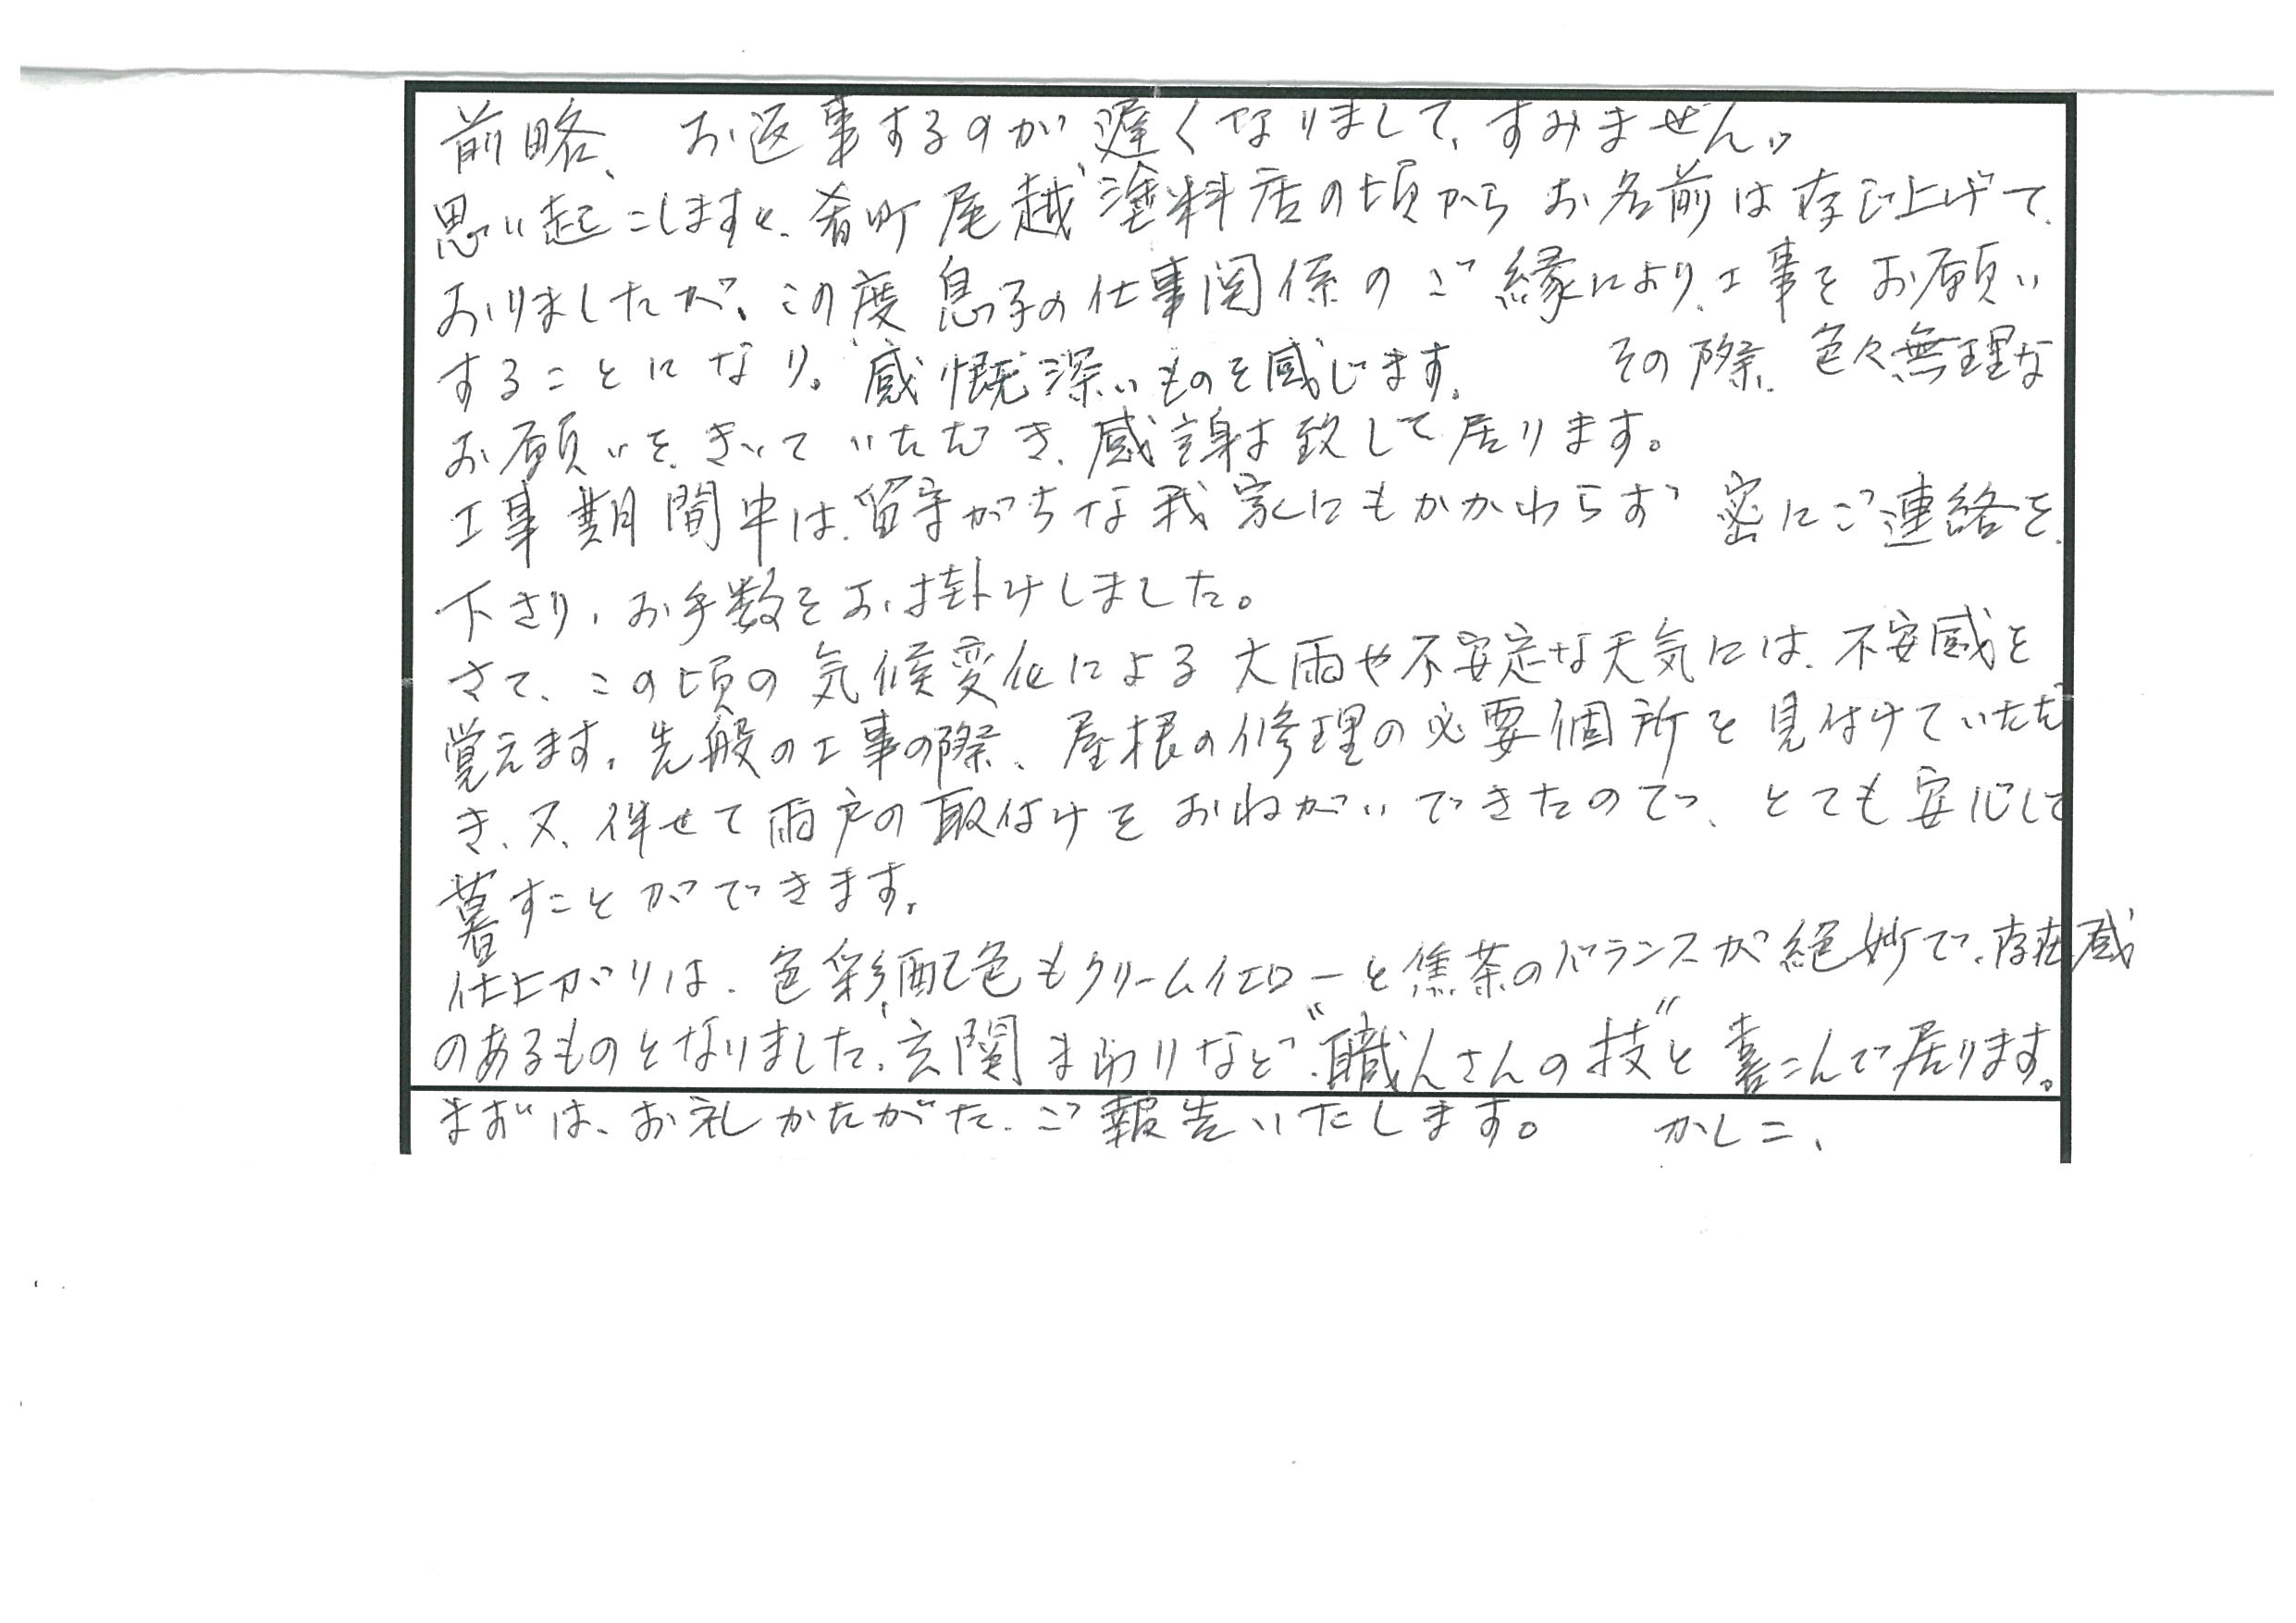 前略、お返事するのが遅くなりまして、すみません。
思い起こしますと、肴町尾越塗料店の頃からお名前は存じ上げて、
おりましたが、この度息子の仕事関係のご縁により、工事をお願い
することになり。感慨深いものを感じます。 その際、色々無理な
お願いを、きいていただき、感謝致して居ります。
工事期間中は、留守がちな我家にもかかわらず 密にご連絡を、
下さり、お手数をお掛けしました。
さて、この頃の気候変化による大雨や不安定な天気には、不安感を
覚えます。先般の工事の際、屋根の修理の必要個所を見付けていただ
き、又、併せて雨戸の取付けをおねがいできたので、とても安心して
暮すことができます。
仕上がりは、色彩配色もクリームイエローと焦茶のバランスが絶妙で、存在感
のあるものとなりました、玄関 りなど、“職人さんの技”と喜こんで居ります。
まずは、お礼かたがた、ご報告いたします。 かしこ、